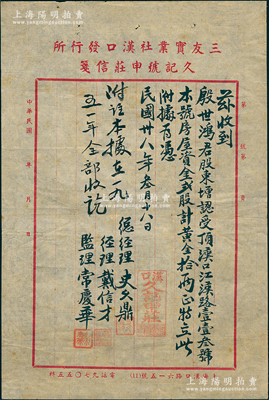 上海陽明拍賣
三友實業社漢口發行所
久記號申莊信箋
茲收到
殷世鴻君股東壇認受頂漢口江漢路壹壹叁號
本號房屋資金貳股計黃金拾兩正特立此
附據為憑
民國卅八年叁月十八日
總經理史久鼎
經理戴信才
監理常慶華
附註本據在一九
五一年全部收訖
中華民國 年 月 日